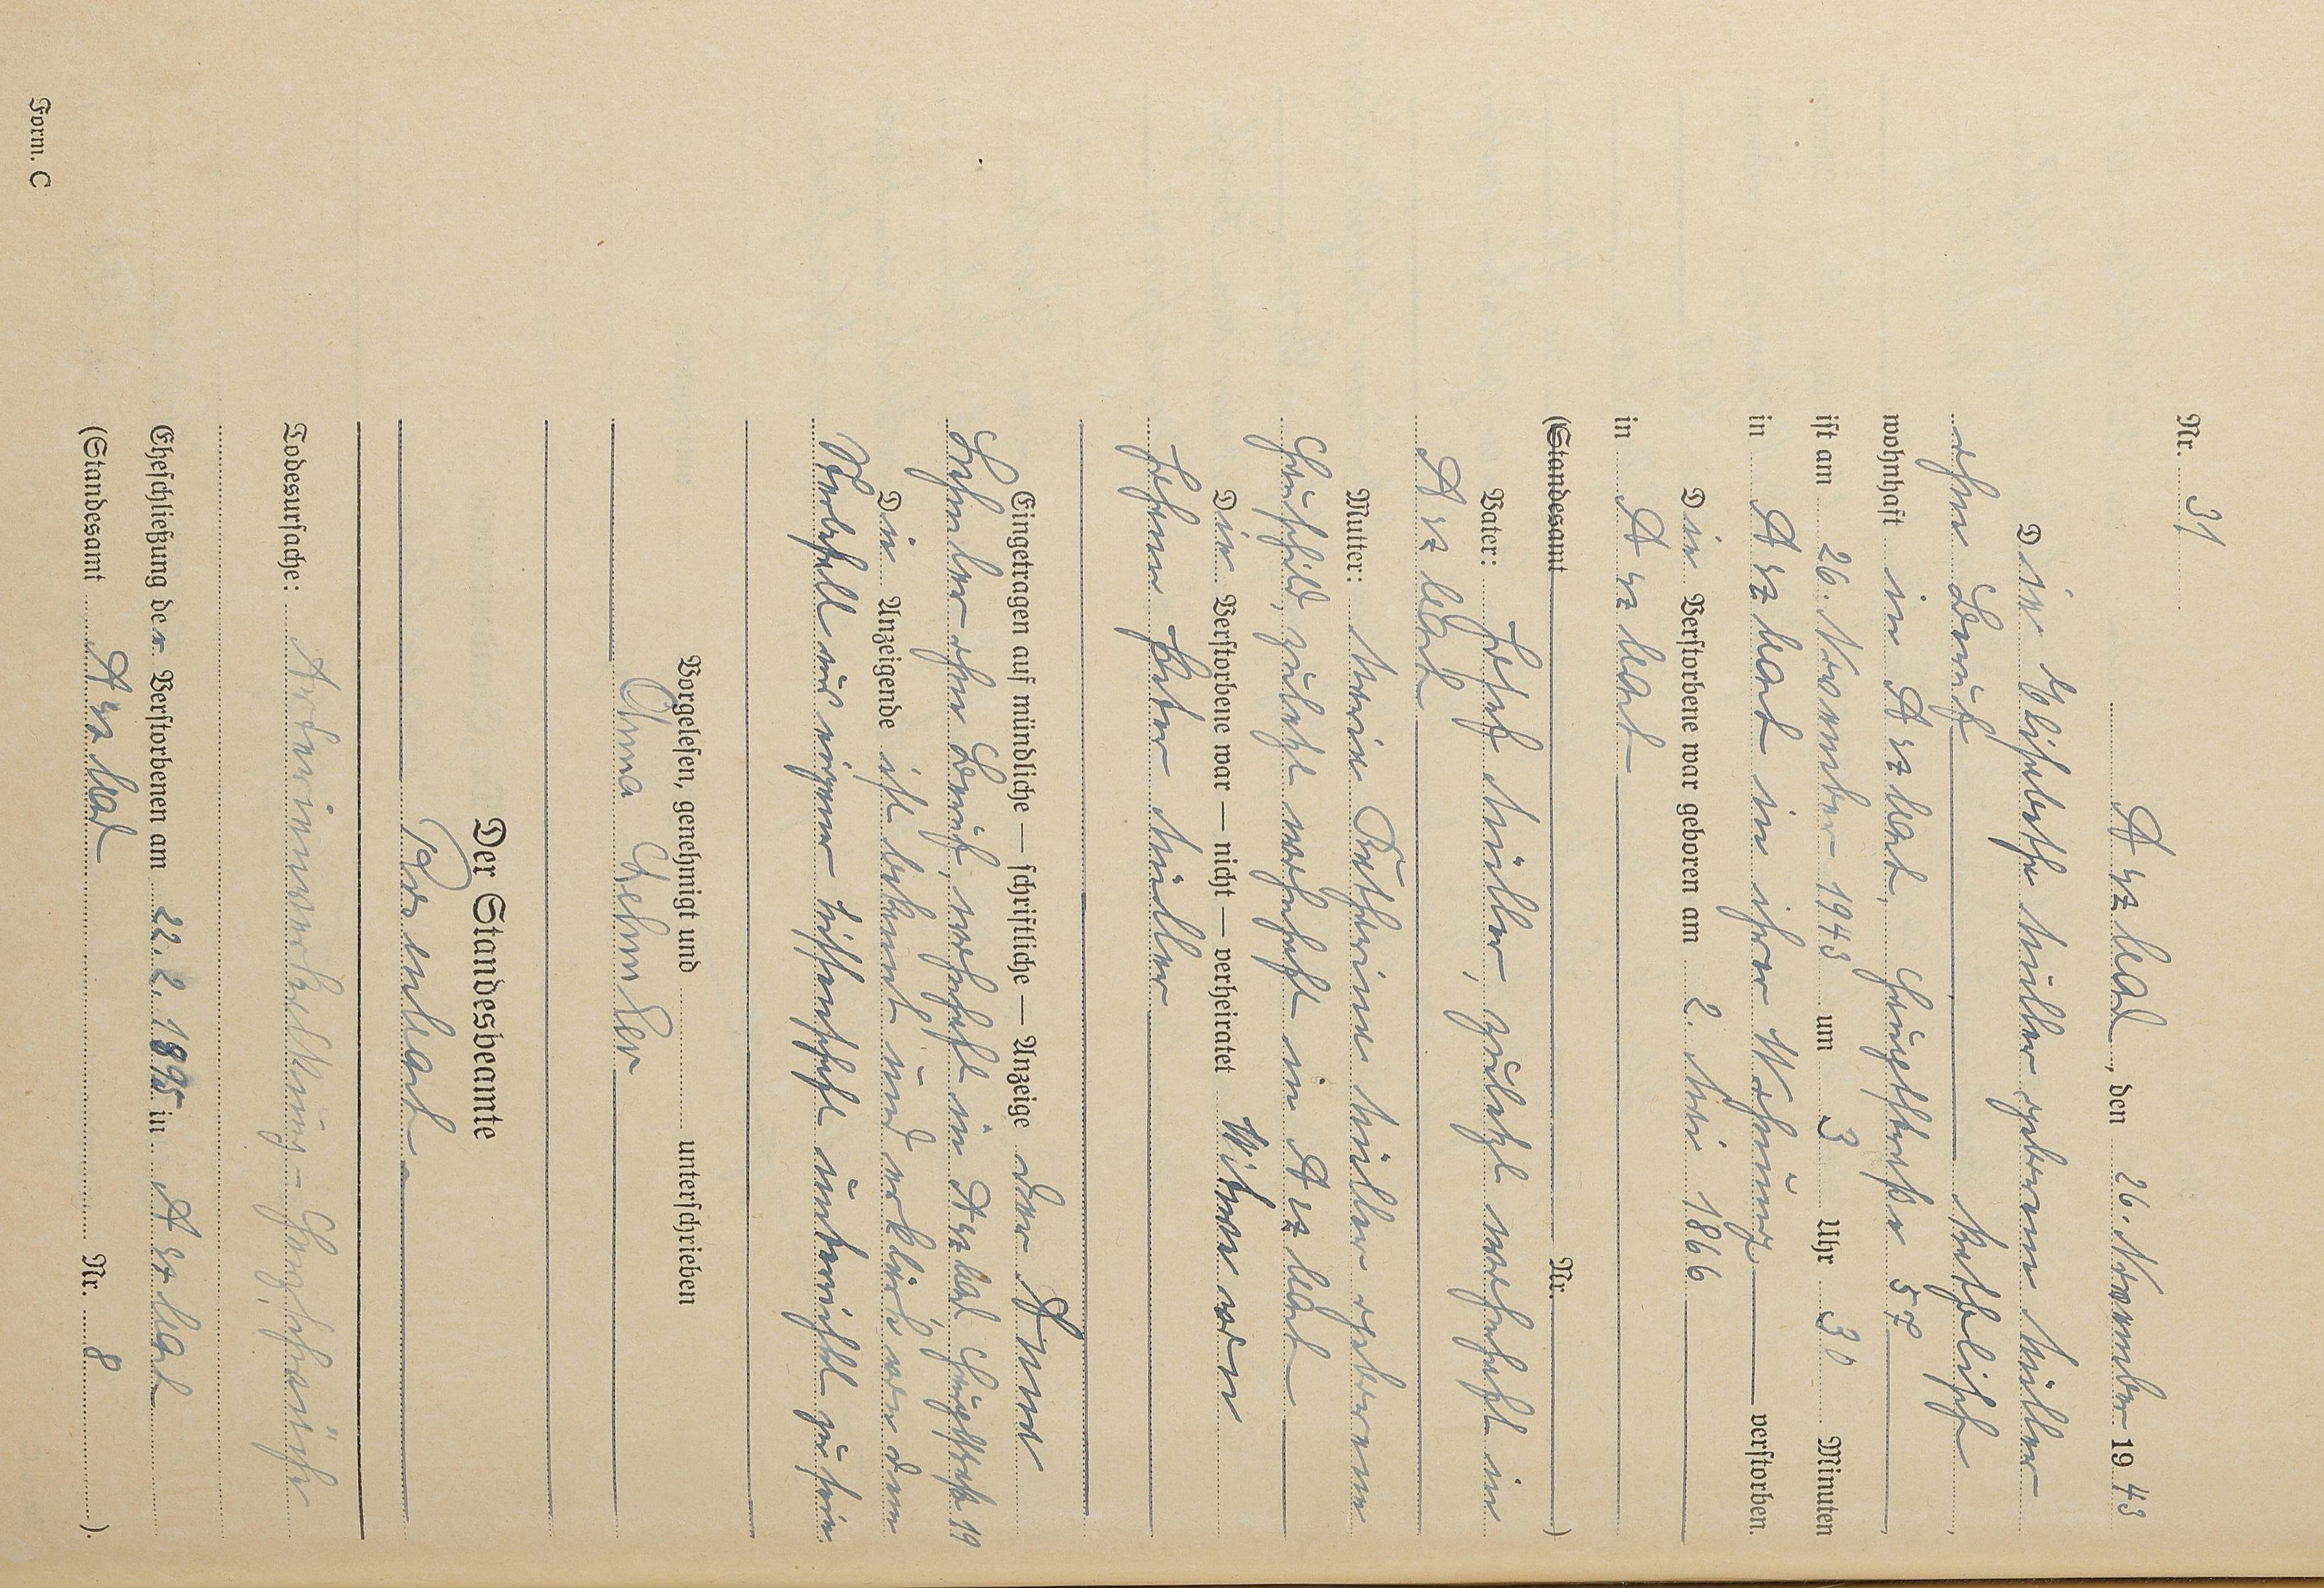 Nr. 31
Arzbach, den 26. November 1943
Die Elisabetha Müller geborene Müller
ohne Beruf katholisch
wohnhaft in Arzbach, Hauptstraße 57
ist am 26. November 1943 um 3 Uhr 30 Minuten
in Arzbach in ihrer Wohnung verstorben.
Die Verstorbene war geboren am 2. Mai 1866
in Arzbach
(Standesamt Nr. )
Vater: Josef Müller, zuletzt wohnhaft in
Arzbach
Mutter: Maria Katharina Müller geborene
zuletzt wohnhaft in Arzbach
Die Verstorbene war — nicht — verheiratet Witwe von
Johann Peter Müller
Eingetragen auf mündliche — schriftliche — Anzeige der Anna
ohne Beruf, wohnhaft in Arzbach Hauptstraße 19
Die Anzeigende ist bekannt und erklärt, von dem
Sterbefall aus eigener Wissenschaft unterrichtet zu sein.
Vorgelesen, genehmigt und unterschrieben
Anna
Der Standesbeamte
Todesursache: Arterienverkalkung - Herzschwäche
Eheschließung der Verstorbenen am 22. 2. 1895 in Arzbach
(Standesamt Arzbach Nr. 8 ).
Form. C